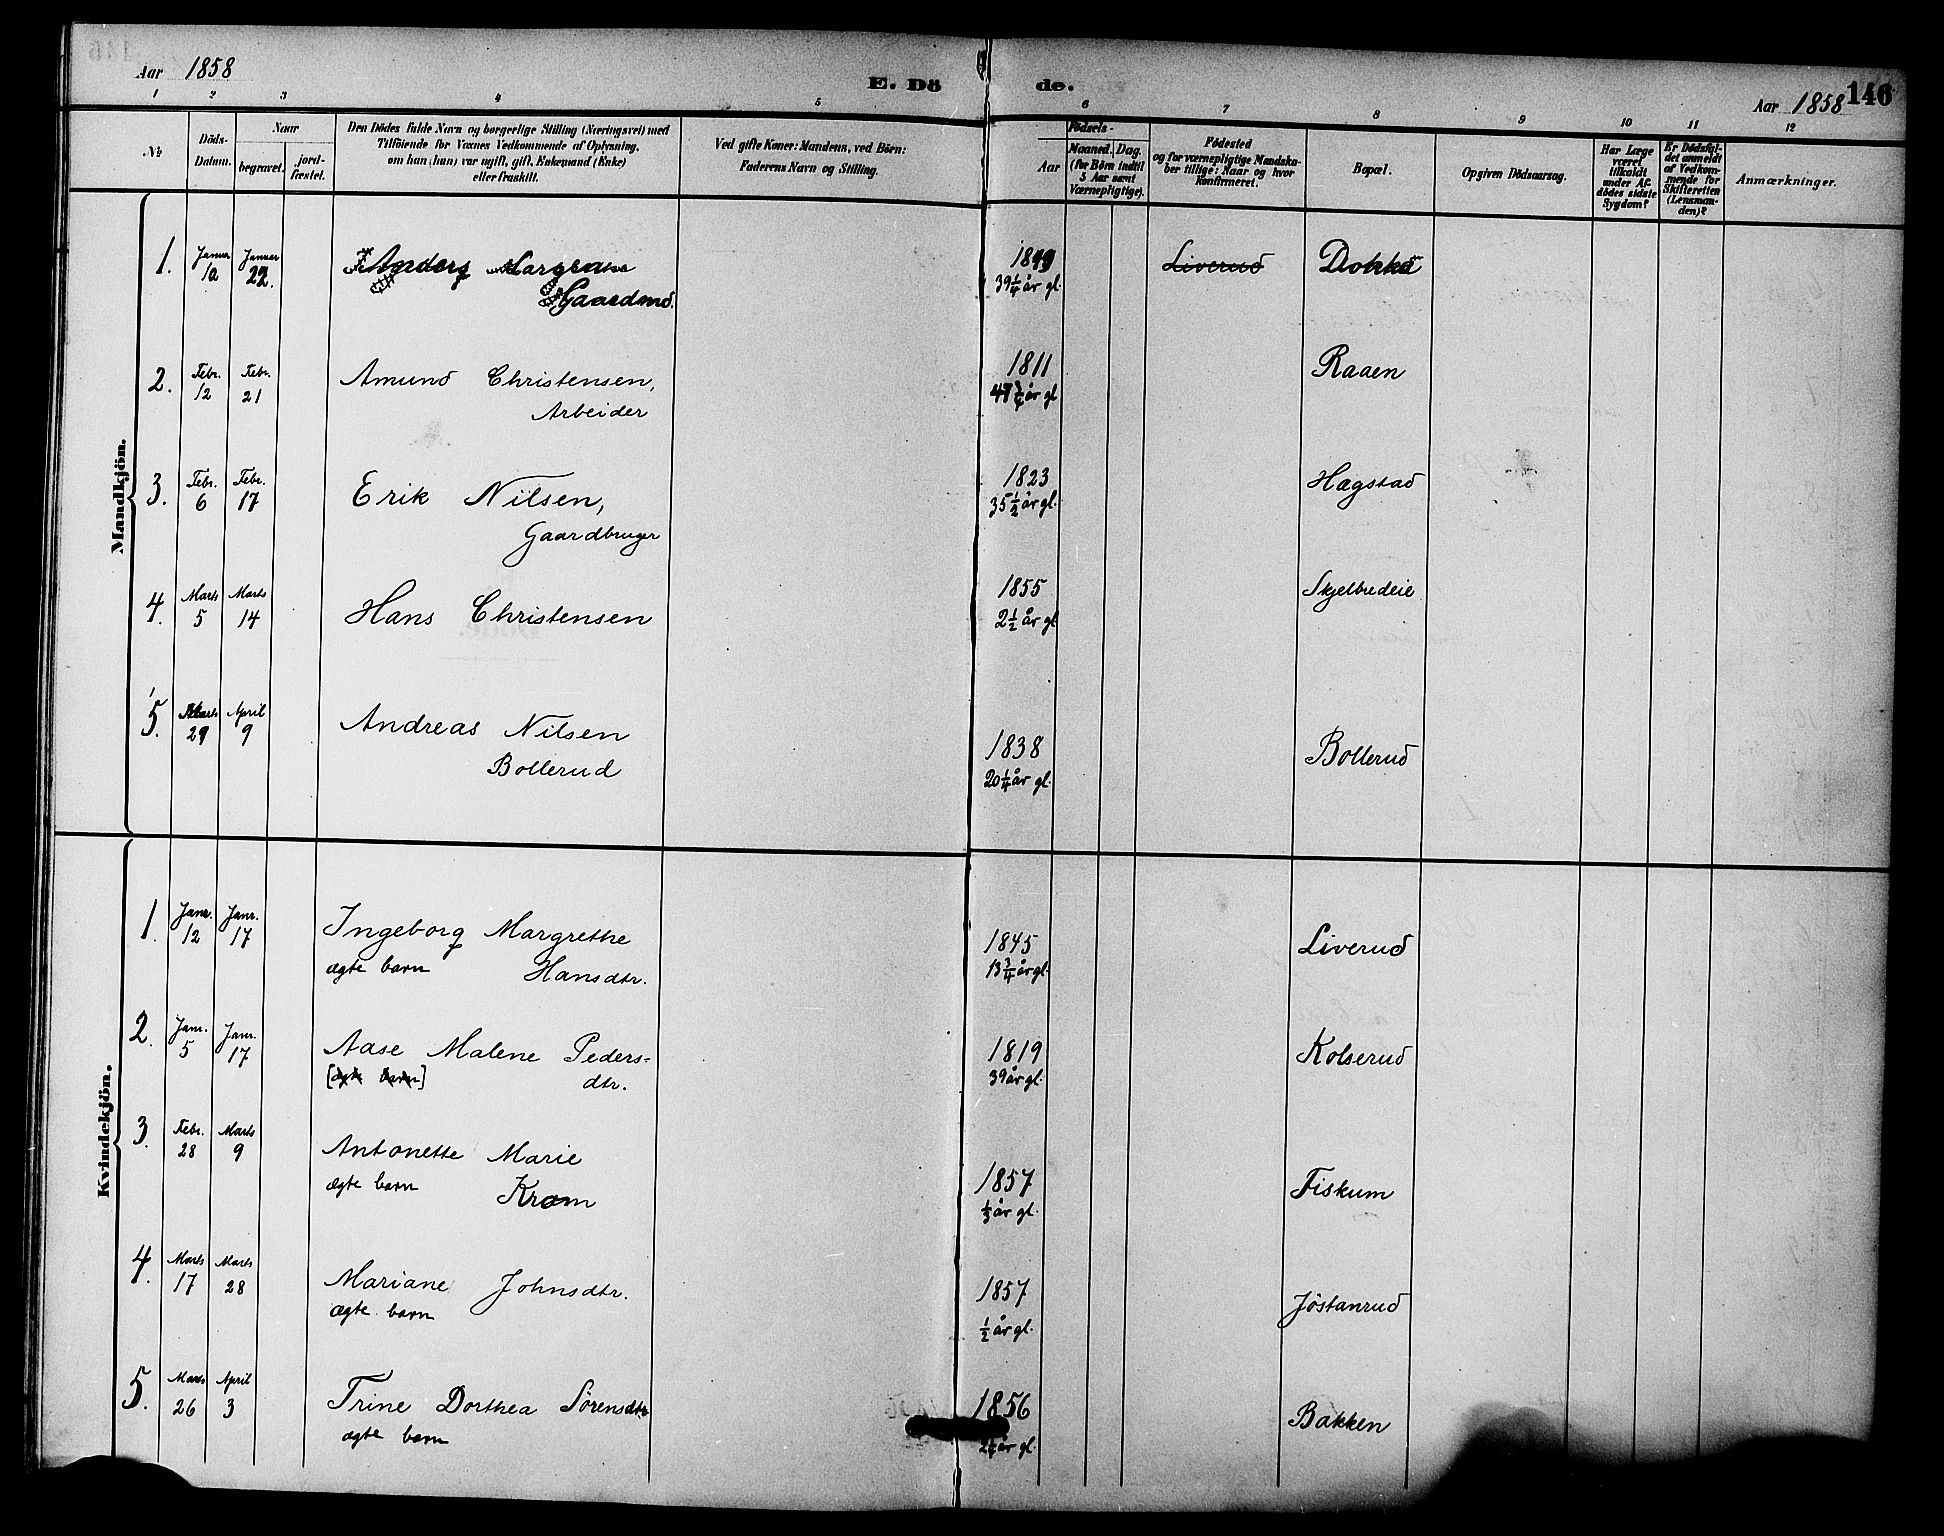 Aar 1858
E. Dö de.
Aar 1858 146
1 2 3 4 5 6 7 8 9 10 11 12
No
Döds-
Datum.
Naar
begravet.
jord-
fæstet.
Den Dödes fulde Navn og borgerlige Stilling (Næringsvei) med
Tilföiende for Voxnes Vedkommende af Oplysning,
om han (hun) var ugift, gift, Enkemand (Enke)
eller fraskilt.
Ved gifte Koner: Mandens, ved Börn:
Faderens Navn og Stilling.
Födsels-
Aar
Maaned. Dag.
(for Börn indtil
5 Aar samt
Værnepligtige).
Födested
og for værnepligtige Mandska-
ber tillige: Naar og hvor
konfirmeret.
Bopæl.
Opgiven Dödsaarsag.
Har Læge
været
tilkaldt
under Af-
dödes sidste
Sygdom?
Er Dödsfal-
det anmeldt
af Vedkom-
mende for
Skifteretten
(Lensman-
den)?
Anmærkninger.
Mandkjön.
1. Januar 10 Januar 22. Gaardmd. 1849 39 1/4 år gl. Liverud Dokka
2. Febr. 12 Febr. 21 Amund Christensen, 1811 Raaen
Arbeider år gl
3. Febr. 6 Febr. 17 Erik Nilsen, 1823 Hægstad
Gaardbruger 35 1/2 år gl.
4. Marts 5 Marts 14 Hans Christensen 1855 Skjelbredeie
2 1/2 år gl
5. Marts 29 April 9 Andreas Nilsen 1838 Bollerud
Bollerud 20 1/4 år gl.
Kvindekjön.
1. Janr. 12 Janr. 17 Ingeborg Margrethe 1845 Liverud
ægte barn Hansdtr. 13 3/4 år gl.
2. Janr. 5 Janr. 17 Aase Malene Peders= 1819 Kolserud
[ægte barn] dtr. 39 år gl.
3. Febr. 28 Marts 9 Antonette Marie 1857 Fiskum
ægte barn Kram 1/3 år gl.
4. Marts 17 Marts 28 Mariane Johnsdtr. 1857 Jøstanrud
ægte barn 1/2 år gl.
5. Marts 26 April 3 Trine Dorthea Sørensdtr 1856 Bakken
ægte barn år gl.